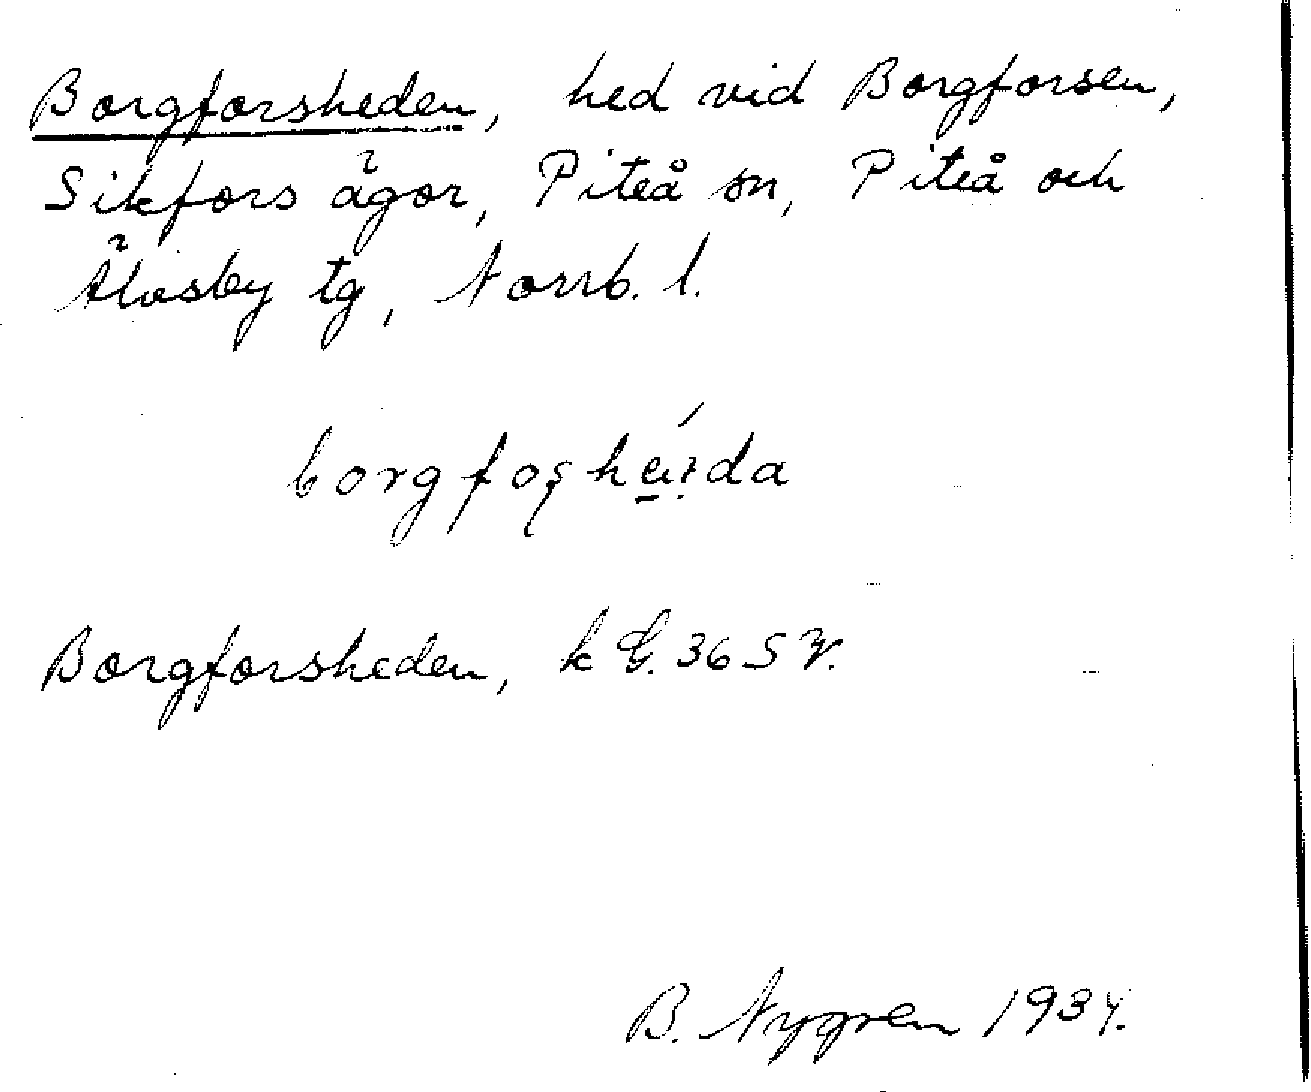 Borgforsheden, hed vid Borgforsen,
Sikfors ägor, Piteå sn, Piteå och
Älvsby tg, Norrb. l.
Borgforsheden, k G. 36 S V.
B. Nygren 1934.